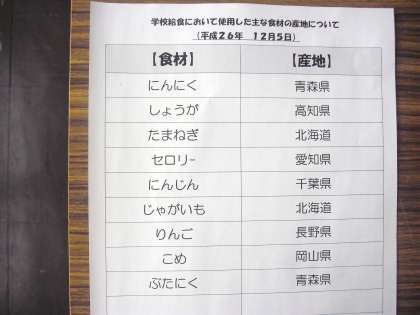 学校給食において使用した主な食材の産地について
（平成２６年　１２月５日）
【食材】　【産地】
にんにく　青森県
しょうが　高知県
たまねぎ　北海道
セロリー　愛知県
にんじん　千葉県
じゃがいも　北海道
りんご　長野県
こめ　岡山県
ぶたにく　青森県